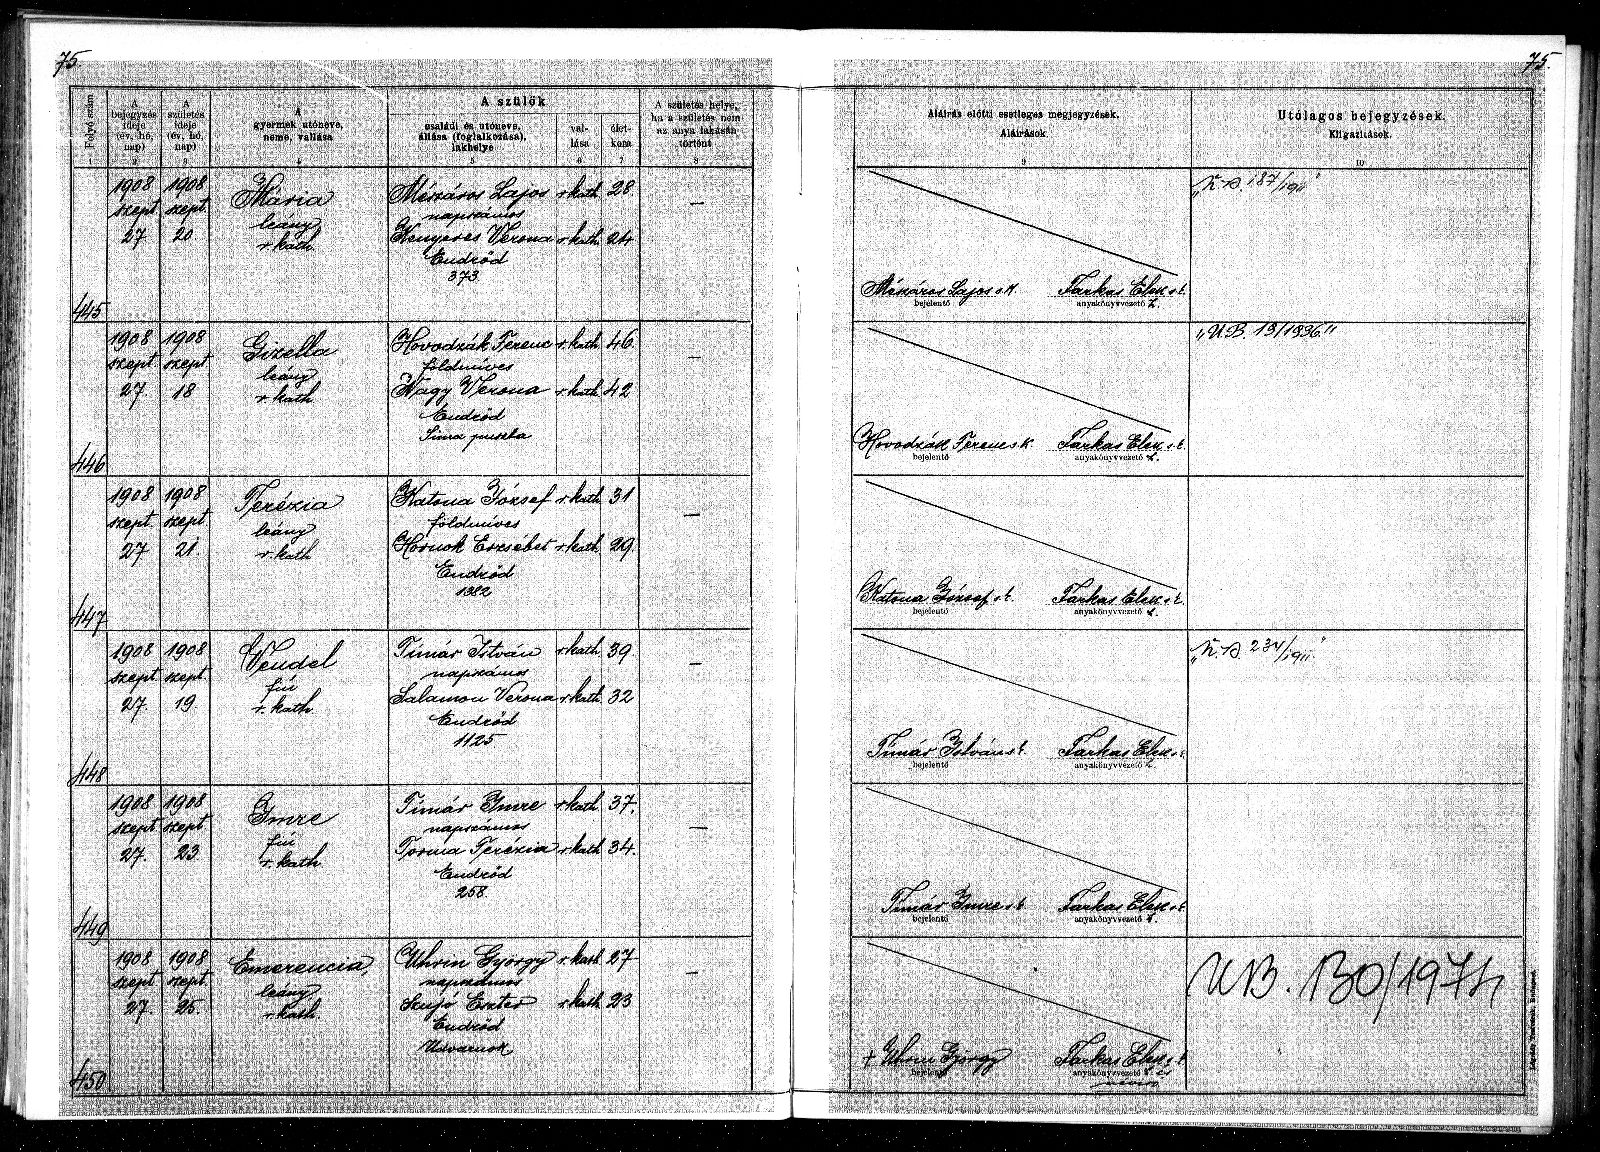 75.
75.
Folyó szám
A bejegyzés ideje (év, hó, nap)
A születés ideje (év, hó, nap)
A gyermek utóneve, neme, vallása
A szülők
családi és utóneve, állása (foglalkozása), lakhelye
vallása
életkora
A születés helye, ha a születés nem az anya lakásán történt
Aláírás előtti esetleges megjegyzések.
Aláírások
Utólagos bejegyzések.
Kiigazítások.
1 2 3 4 5 6 7 8 9 10
445
1908 szept 27
1908 szept 20
Mária
leány
r. kath
Mészáros Lajos r. kath 28
napszámos
Kenyeres Verona r. kath 24
Endrőd
373
—
Mészáros Lajos
bejelentő
Farkas Elek
anyakönyvvezető
446
1908 szept 27
1908 szept 18
Gizella
leány
r. kath
Hovodzák Ferenc r. kath 46
földmíves
Nagy Verona r. kath 42
Endrőd
Sima puszta
—
Hovodzák Ferenc sk
bejelentő
Farkas Elek
anyakönyvvezető
"U.B. 19/1936"
447
1908 szept. 27
1908 szept. 21.
Terézia
leány
r. kath
Katona József r. kath 31
földmíves
Hornok Erzsébet r. kath 29
Endrőd
1382
—
Katona József
bejelentő
Farkas Elek
anyakönyvvezető
448
1908 szept 27.
1908 szept 19.
Vendel
fiú
r. kath
Timár István r. kath 39.
napszámos
Salamon Verona r. kath 32
Endrőd
1125
—
Timár István
bejelentő
Farkas Elek
anyakönyvvezető
449
1908 szept 27.
1908 szept 23.
Imre
fiú
r. kath
Timár Imre r. kath 37.
napszámos
Torma Terézia r. kath 34.
Endrőd
258.
—
Timár Imre
bejelentő
Farkas Elek
anyakönyvvezető
450
1908 szept 27.
1908 szept. 25.
Emerencia
leány
r. kath
Uhrin György r. kath 27
napszámos
Szujó Eszter r. kath 23
Endrőd
Udvarnok
—
+ Uhrin György
bejelentő
Farkas Elek
anyakönyvvezető
UB. 130/1974